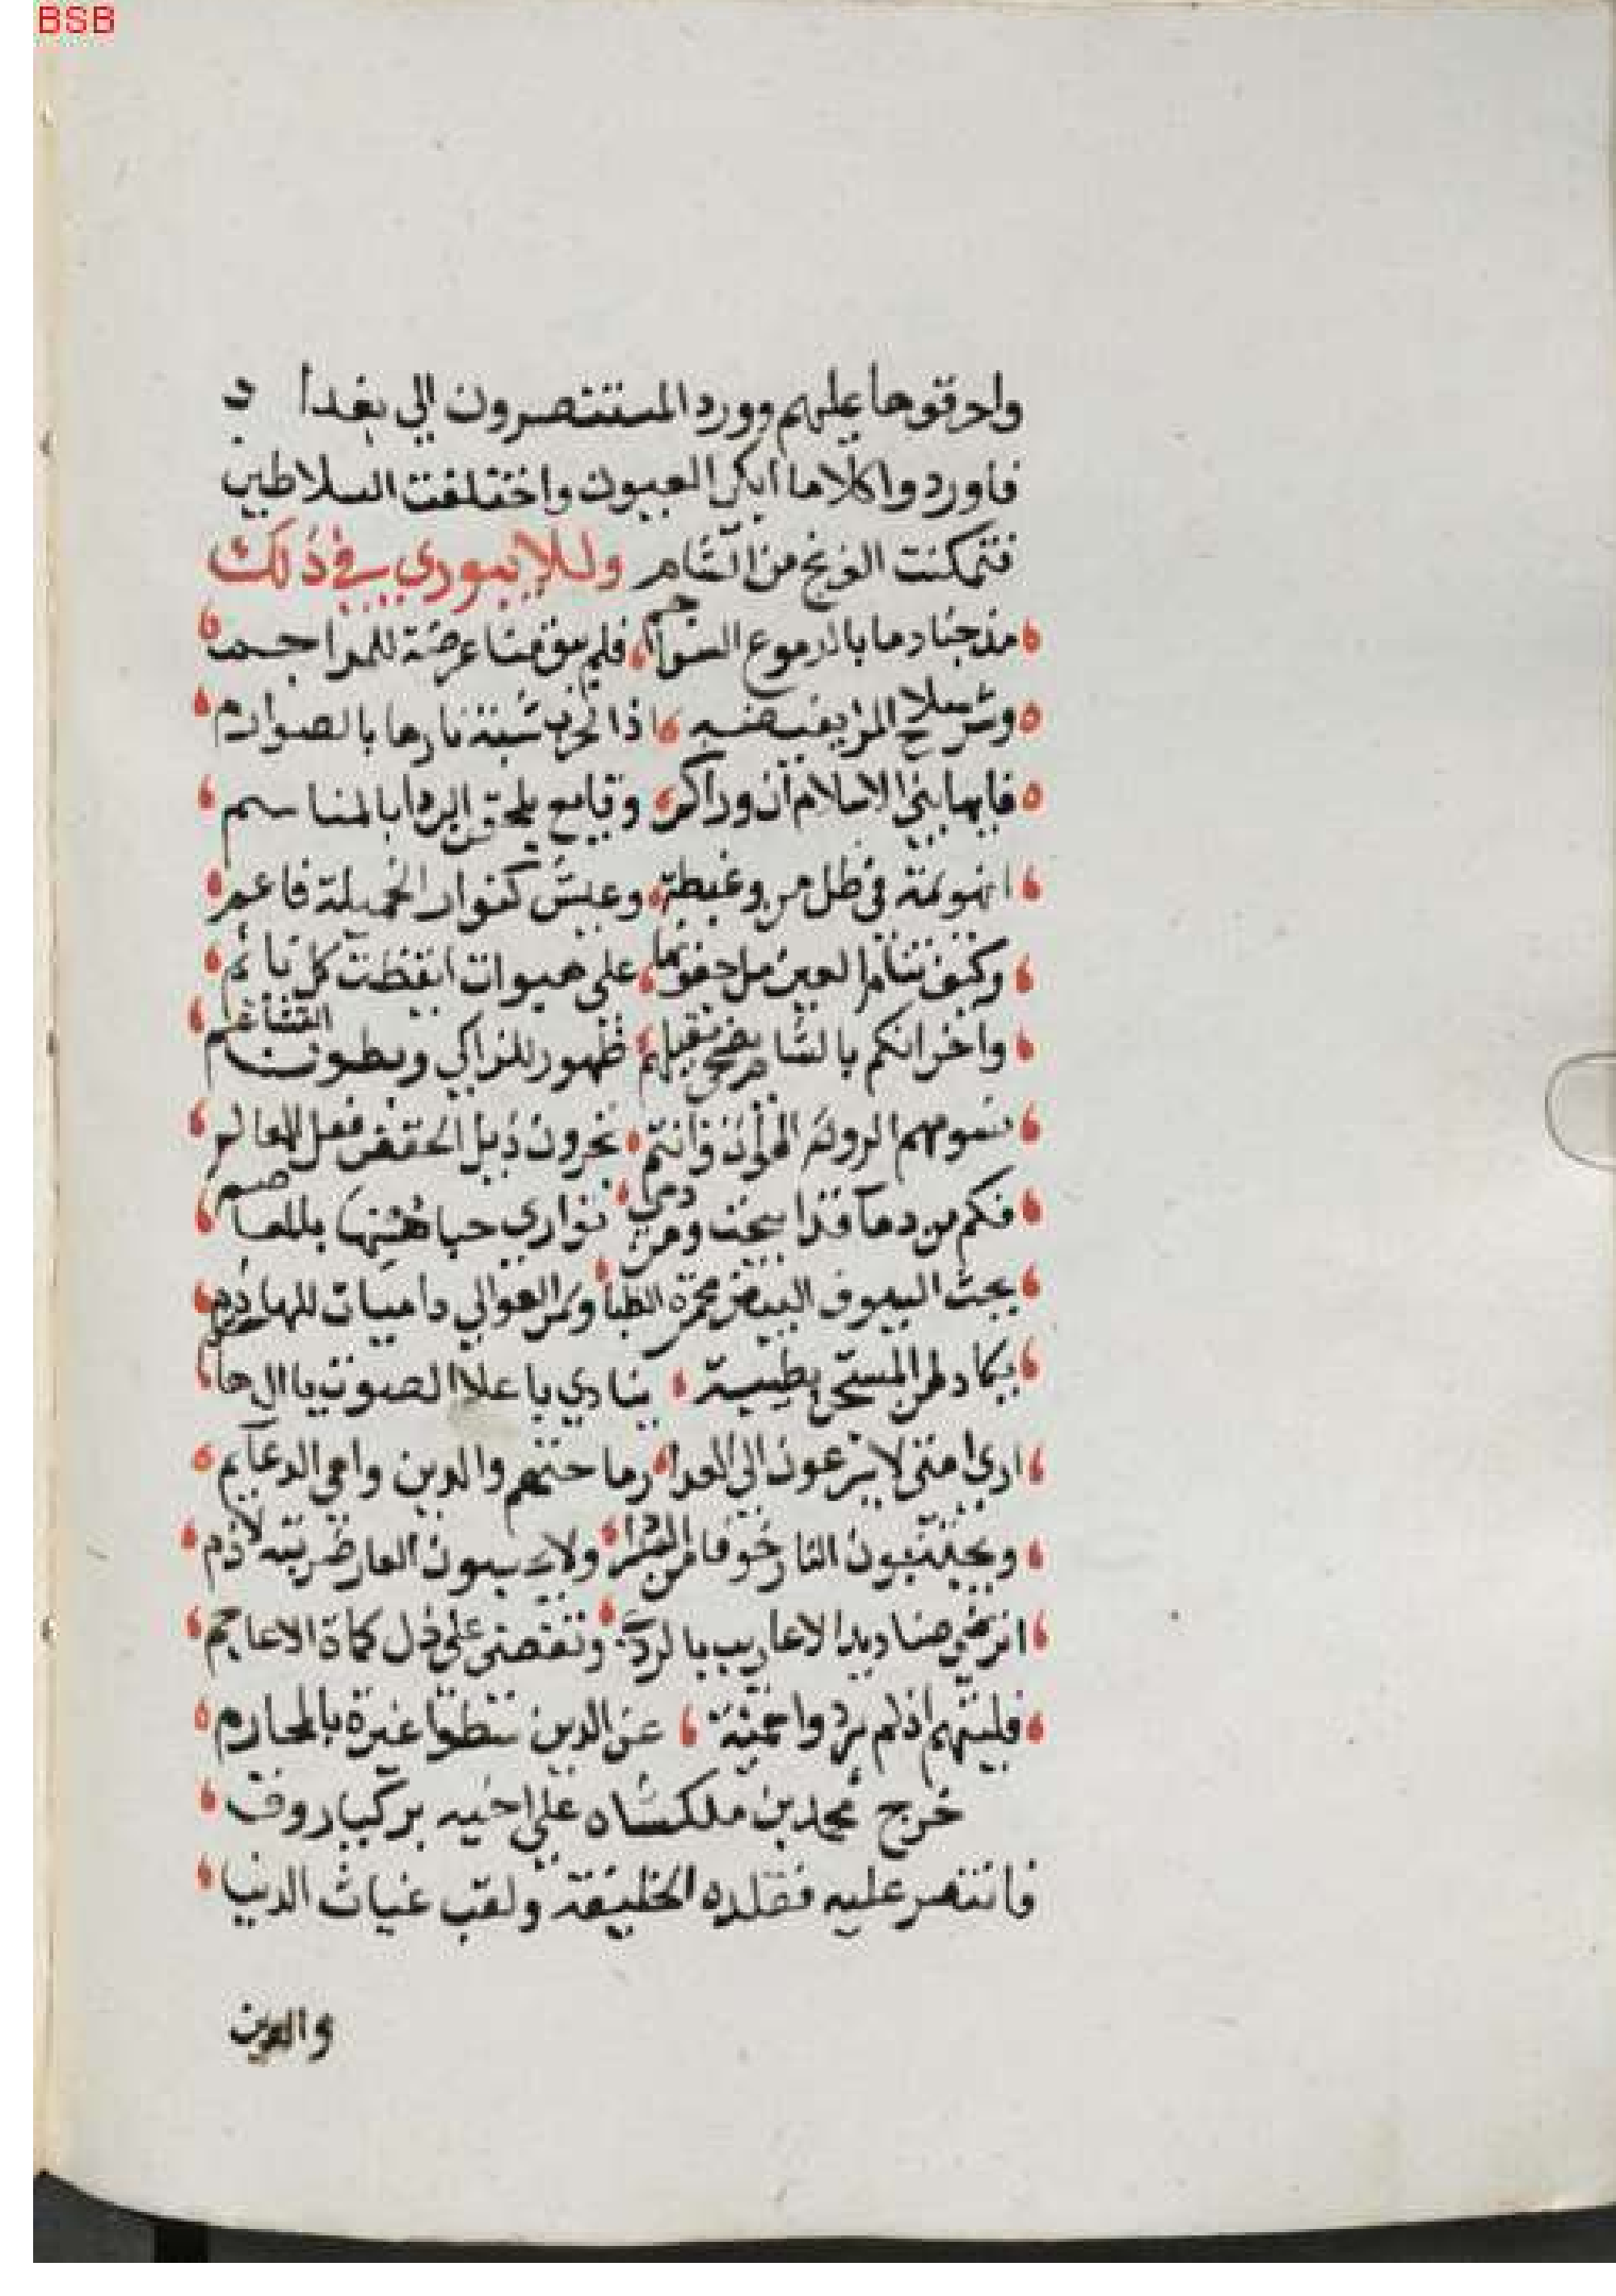 BSB
واحرقوها عليهم وورد المستنصرون الي بغداد
فاوردوا كلاما ابكى العيون واختلفت السلاطين
فتمكنت الفرنج من الشام وللابيوردي في ذلك
مزجنا دما بالدموع السواجم فلم يبق منا عرضة للمراجم
وشر سلاح المرء يفيضه اذا الحرب شبت نارها بالصوارم
فايها بني الاسلام ان وراكم وقايع يلحقن الردا بالمناسم
انهويمة في ظل امن وغبطة وعيش كنوار الخميلة ناعم
وكيف تنام العين مل جفونها على هبوات ايقظت كل نائم
واخوانكم بالشام يضحى مقيلهم ظهور المذاكي وبطون القشاعم
تسومهم الروم الهوان وانتم تجرون ذيل الخفض فعل المسالم
فكم من دماء قد ابيحت ومن دمي تواري حيا حسنها بالمعاصم
بحيث السيوف البيض محمرة الظبا وسمر العوالي داميات اللهاذم
يكاد لهن المستجن بطيبة ينادي باعلا الصوت يا ال هاشم
ارى امتي لا يشرعون الى العدا رماحهم والدين واهي الدعايم
ويجتنبون النار خوفا من الردا ولا يحسبون العار ضربة لازم
اترضى صناديد الاعاريب بالردى وتغضى على ذل كماة الاعاجم
فليتهم اذ لم يردوا حمية عن الدين ضنوا غيرة بالمحارم
خرج محمد بن ملكشاه على اخيه بركياروق
فانتصر عليه فقلده الخليفة ولقب غياث الدنيا
والدين